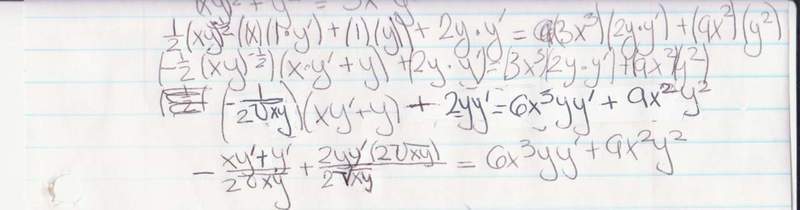 ½(xy)^-½ (x)(1·y') + (1)(y) + 2y·y' = (3x³)(2y·y') + (9x²)(y²)
(-½(xy)^-½)(x·y' + y) + 2y·y' = (3x³)(2y·y') + (9x²)(y²)
(-1/(2√xy))(xy' + y) + 2yy' = 6x³yy' + 9x²y²
- (xy' + y')/(2√xy) + (2yy'(2√xy))/(2√xy) = 6x³yy' + 9x²y²